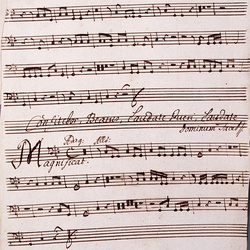 Confitebor, Beatus, Laudate Pueri, Laudate
Dominum Tacet
Adag: All:
Magnificat.